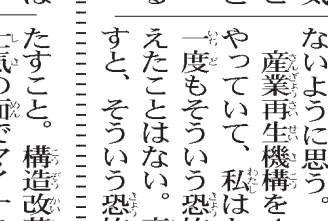 ないように思う。
産業再生機構を
やっていて、私は
一度もそういう恐
えたことはない。
すと、そういう恐
たすこと。構造改革
士気の面でマイナ